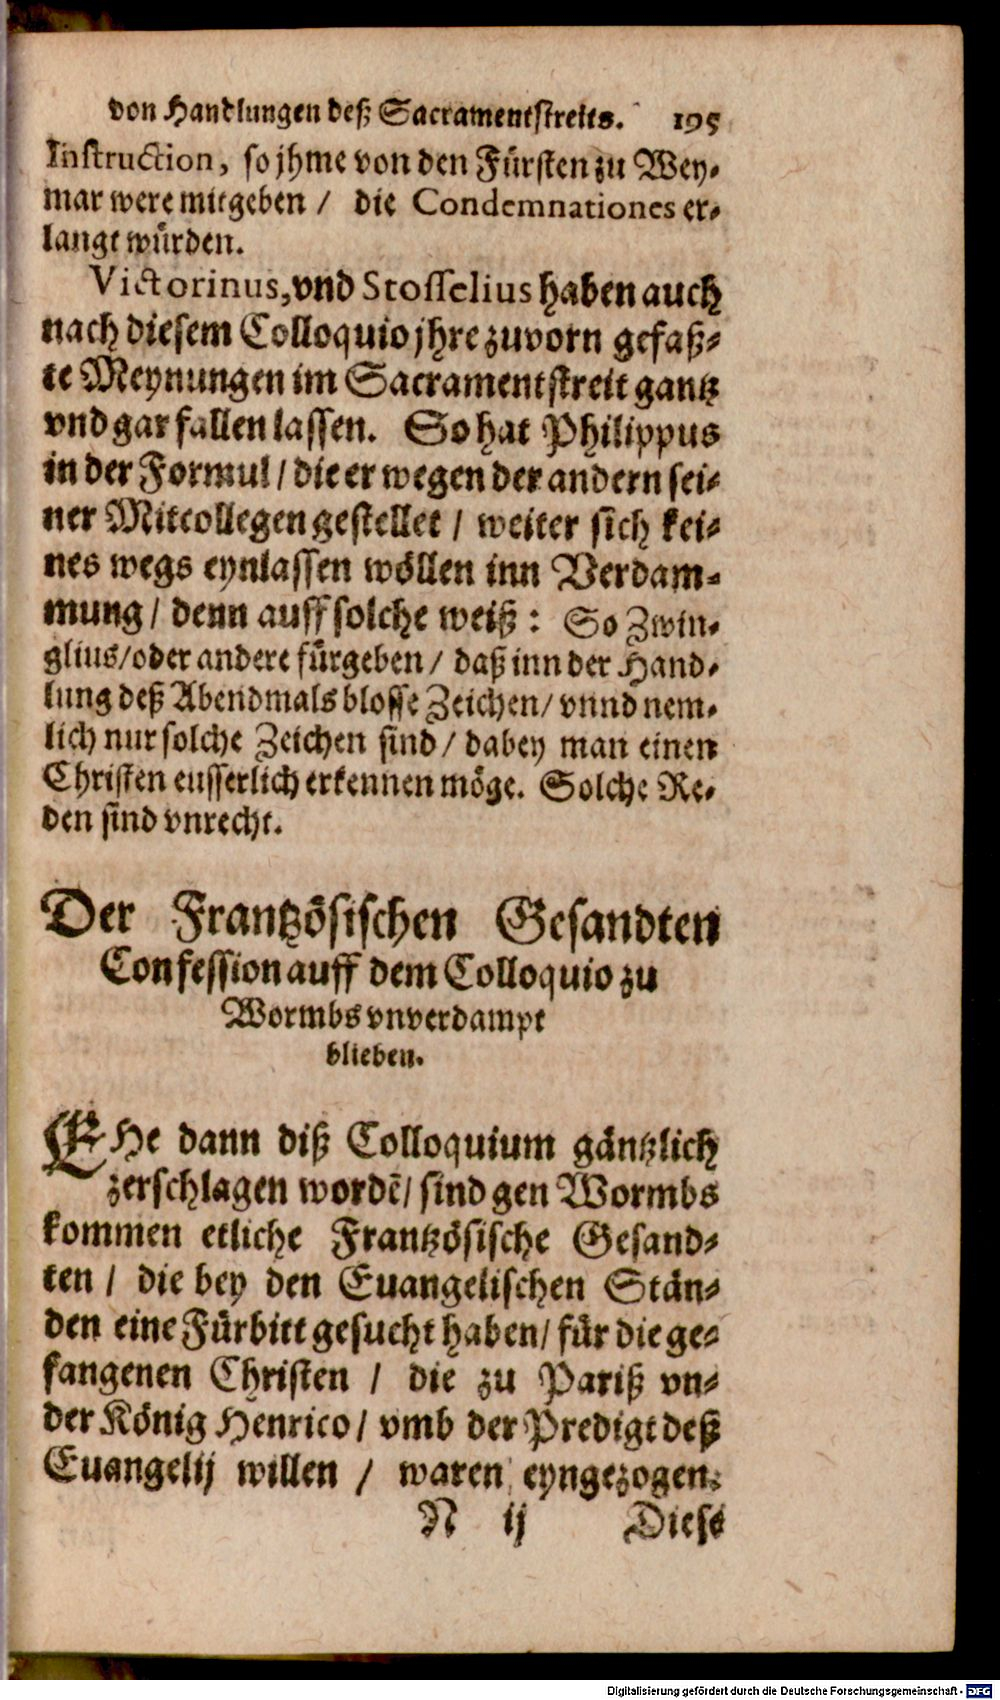 von Handlungen deß Sacramentstreits. 195
Instruction, so jhme von den Fürsten zu Wey-
mar were mitgeben / die Condemnationes er-
langt würden.
Victorinus, vnd Stosselius haben auch
nach diesem Colloquio jhre zuvorn gefaß-
te Meynungen im Sacramentstreit gantz
vnd gar fallen lassen. So hat Philippus
in der Formul / die er wegen der andern sei-
ner Mitcollegen gestellet / weiter sich kei-
nes wegs eynlassen wöllen inn Verdam-
mung / denn auff solche weiß: So Zwin-
glius / oder andere fürgeben / daß inn der Hand-
lung deß Abendmals blosse Zeichen / vnnd nem-
lich nur solche Zeichen sind / dabey man einen
Christen eusserlich erkennen möge. Solche Re-
den sind vnrecht.
Der Frantzösischen Gesandten
Confession auff dem Colloquio zu
Wormbs vnverdampt
blieben.
EHe dann diß Colloquium gäntzlich
zerschlagen wordē / sind gen Wormbs
kommen etliche Frantzösische Gesand-
ten / die bey den Euangelischen Stän-
den eine Fürbitt gesucht haben / für die ge-
fangenen Christen / die zu Pariß vn-
der König Henrico / vmb der Predigt deß
Euangelij willen / waren eyngezogen.
N ij Diese
Digitalisierung gefördert durch die Deutsche Forschungsgemeinschaft - DFG